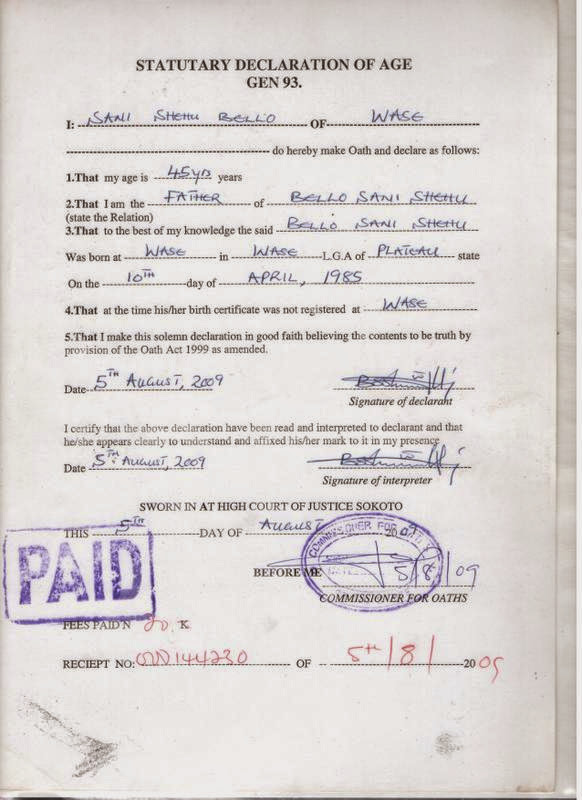 STATUTARY DECLARATION OF AGE
GEN 93.
I: SANI SHEHU BELLO OF WASE
do hereby make Oath and declare as follows:
1.That my age is 45yrs years
2.That I am the FATHER of BELLO SANI SHEHU
(state the Relation)
3.That to the best of my knowledge the said BELLO SANI SHEHU
Was born at WASE in WASE L.G.A of PLATEAU state
On the 10TH day of APRIL, 1985
4.That at the time his/her birth certificate was not registered at WASE
5.That I make this solemn declaration in good faith believing the contents to be truth by
provision of the Oath Act 1999 as amended.
Date 5TH August, 2009
Signature of declarant
I certify that the above declaration have been read and interpreted to declarant and that
he/she appears clearly to understand and affixed his/her mark to it in my presence
Date 5TH August, 2009
Signature of interpreter
SWORN IN AT HIGH COURT OF JUSTICE SOKOTO
THIS 5TH DAY OF August 2009
COMMISSIONER FOR
PAID
BEFORE ME 5/8/09
COMMISSIONER FOR OATHS
FEES PAID N 20 K
RECIEPT NO: 144230 OF 5th/8/ 2009